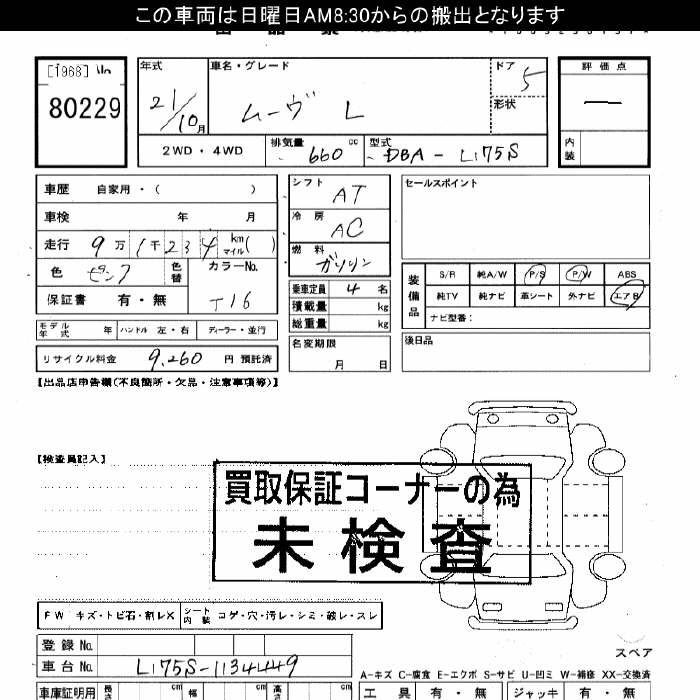 この車両は日曜日AM8:30からの搬出となります
[1968] No
80229
年式
21/10月
車名・グレード
ムーヴ L
ドア
5
形状
評価点
—
内装
2WD・4WD
排気量 660 cc
型式 DBA-L175S
車歴 自家用・( )
車検 年 月
走行 9万1千234 km マイル( )
色
色替
カラーNo.
T16
保証書 有・無
モデル年式 年
ハンドル 左・右
ディーラー・並行
リサイクル料金 9,260 円 預託済
シフト
AT
冷房
AC
燃料
ガソリン
乗車定員 4 名
積載量 kg
総重量 kg
名変期限
月 日
セールスポイント
装備品
S/R 純A/W P/S P/W ABS
純TV 純ナビ 革シート 外ナビ エアB
ナビ型番:
後日品
【出品店申告欄(不良箇所・欠品・注意事項等)】
【検査員記入】
買取保証コーナーの為
未検査
FW キズ・トビ石・割レX
シート内装 コゲ・穴・汚レ・シミ・破レ・スレ
登録No.
車台No. L175S-1134449
スペア
A-キズ C-腐食 E-エクボ S-サビ U-凹ミ W-補修 XX-交換済
車庫証明用 長さ cm 幅 cm 高さ cm
工具 有・無 ジャッキ 有・無